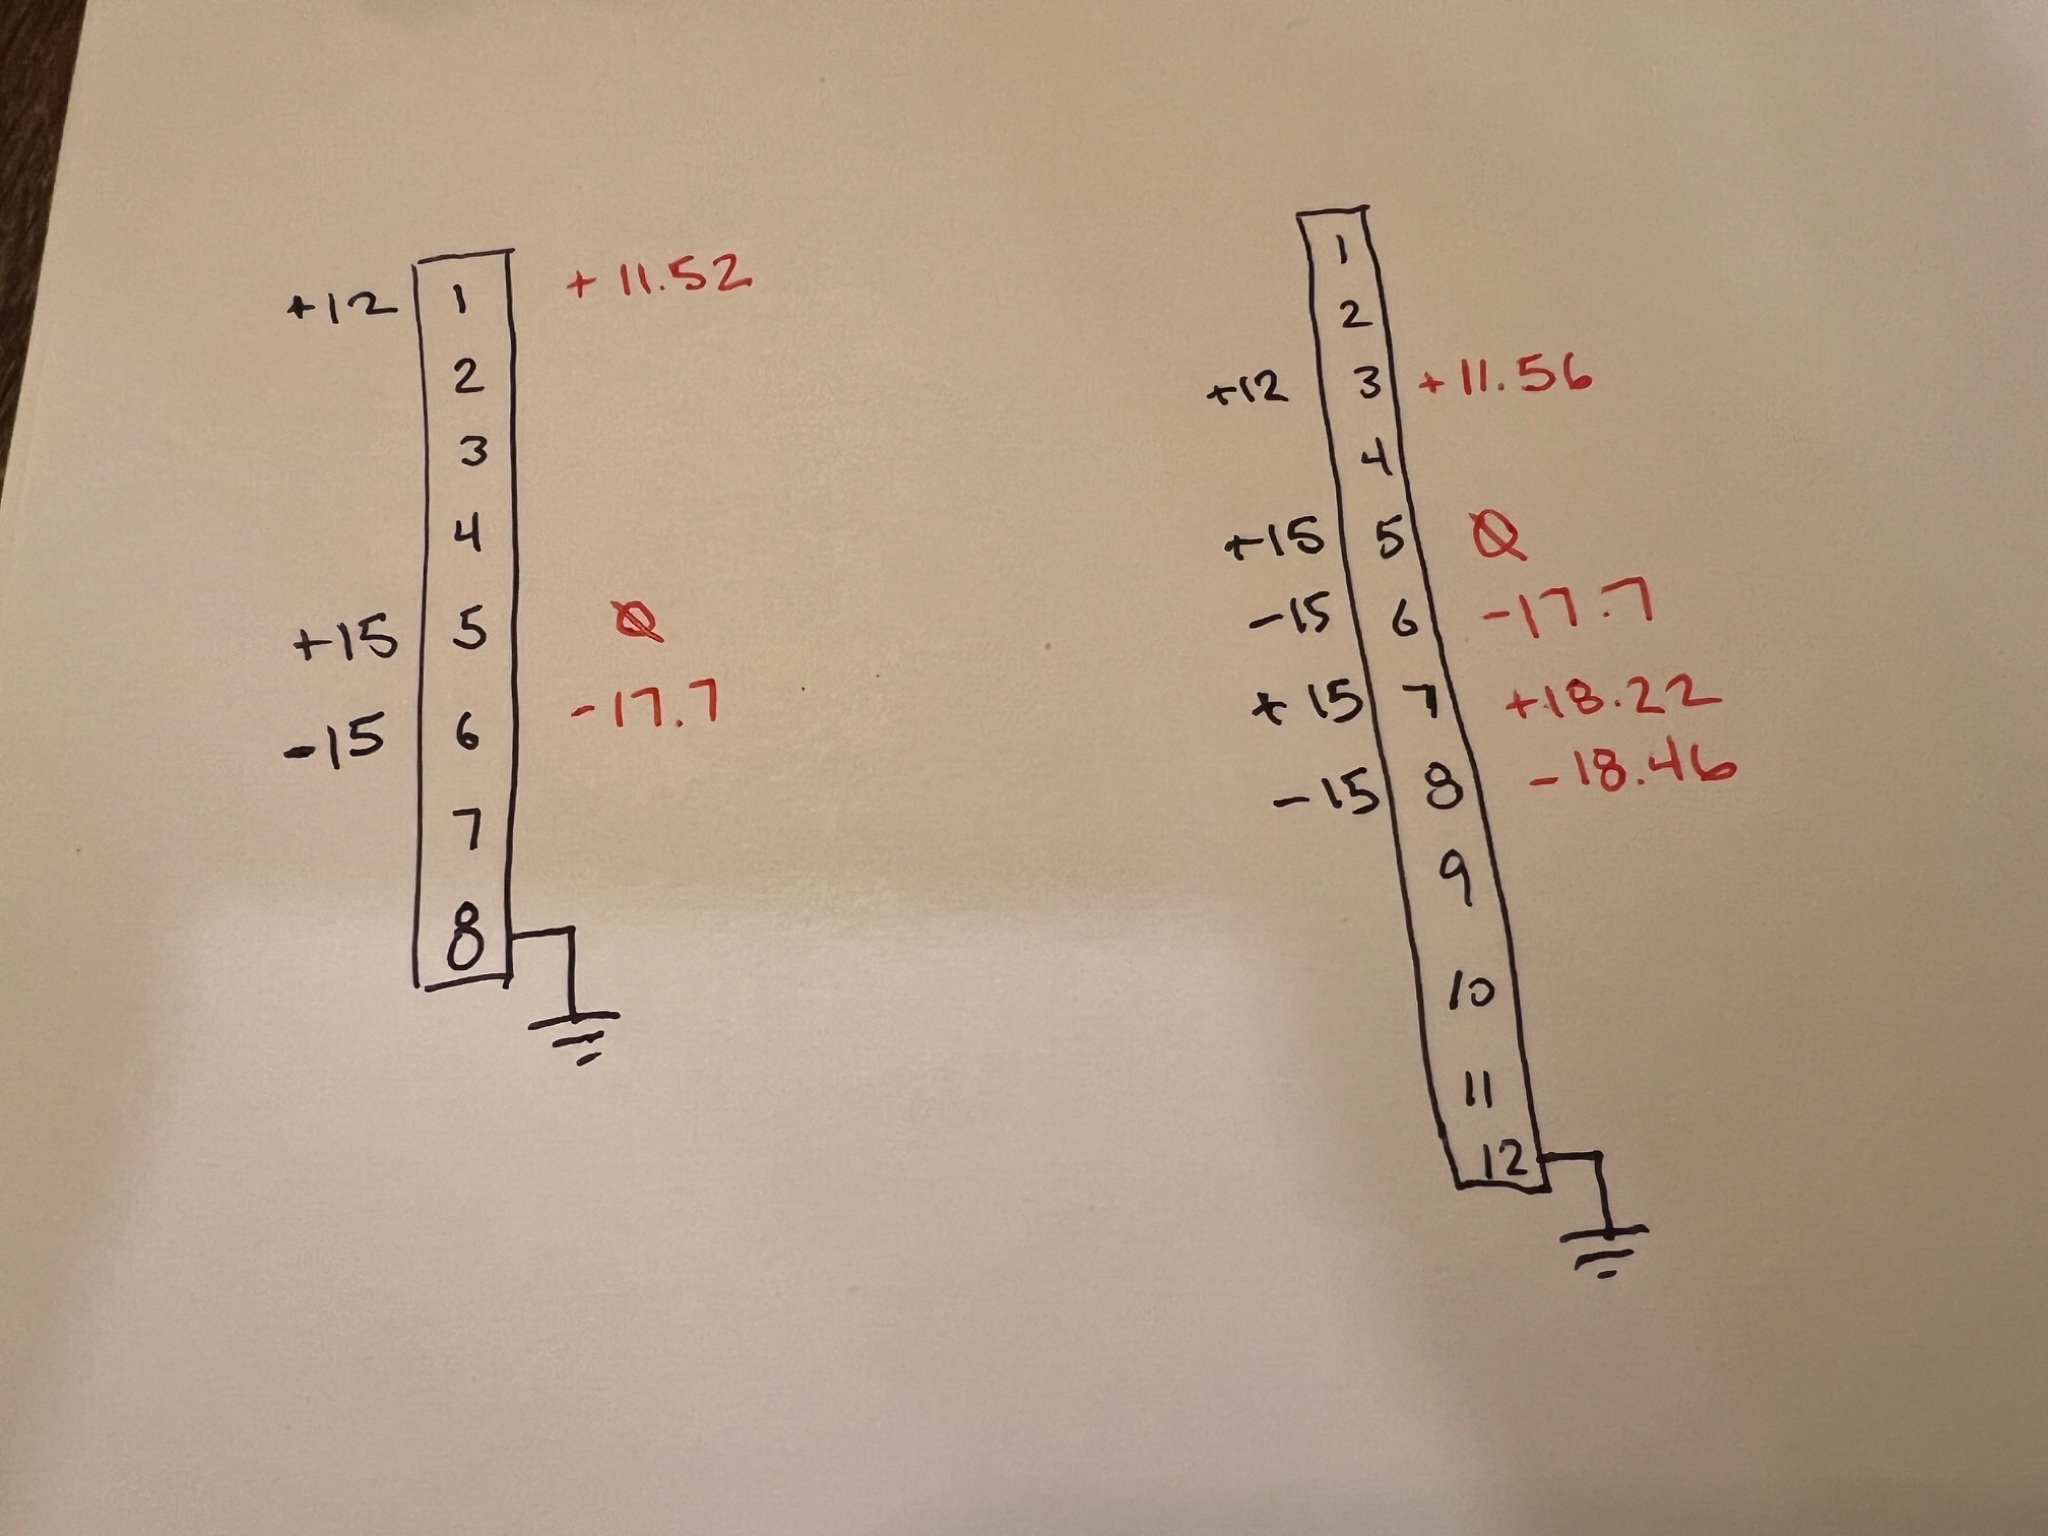 +12 1 +11.52
2
3
4
+15 5 Ø
-15 6 -17.7
7
8
1
2
+12 3 +11.56
4
+15 5 Ø
-15 6 -17.7
+15 7 +18.22
-15 8 -18.46
9
10
11
12